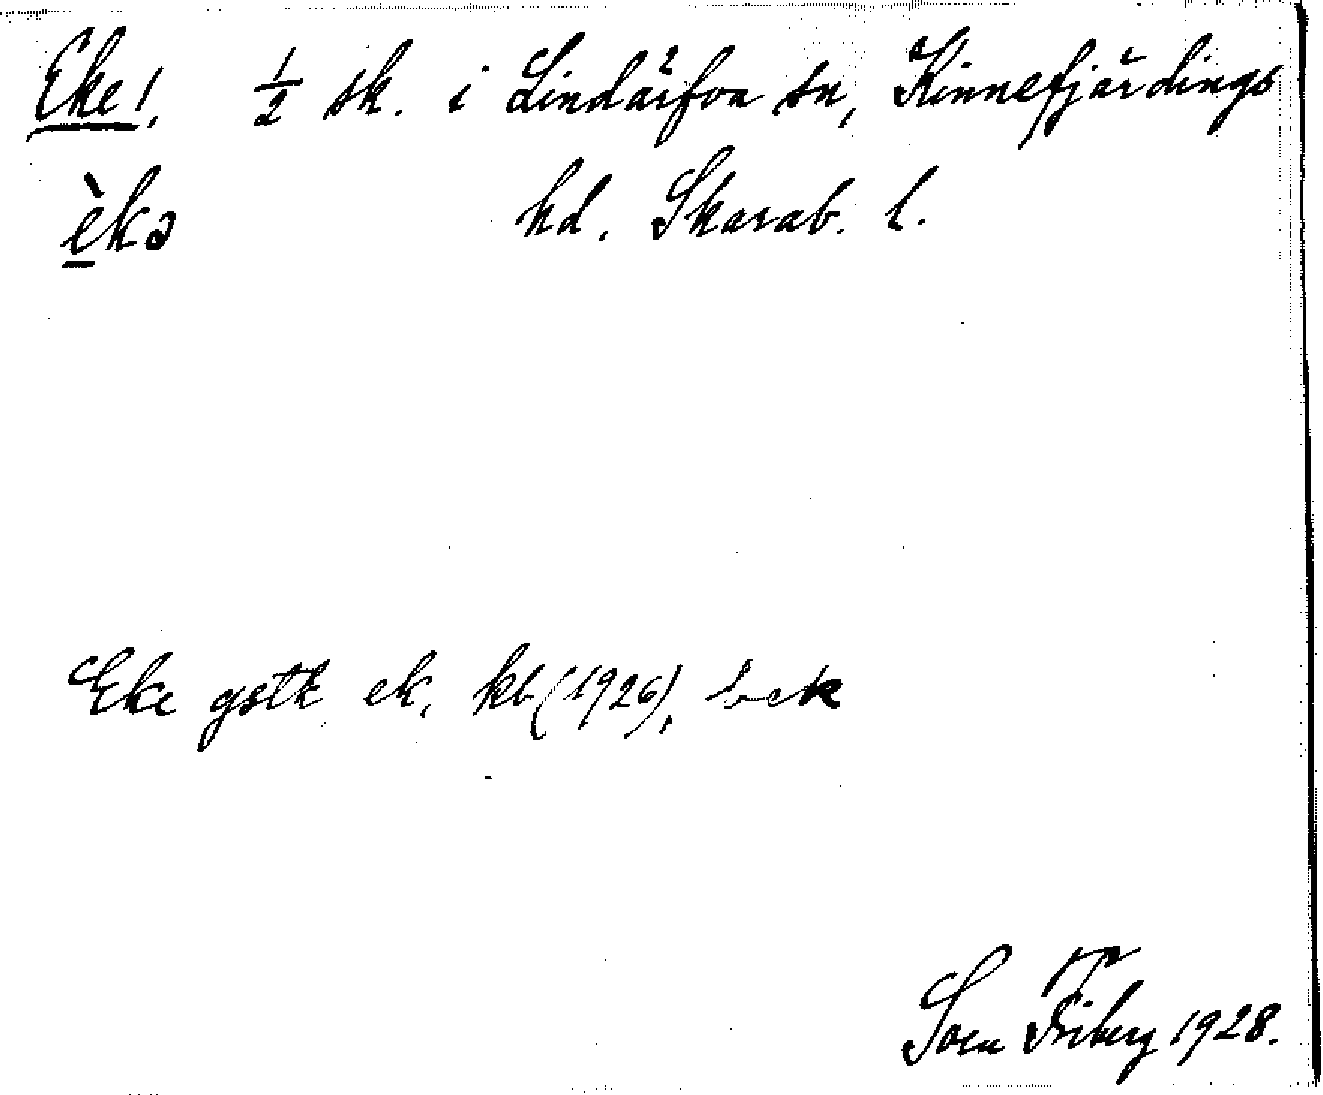 Eke!, ½ sk. i Lindärfva sn, Kinnefjärdings
èkə hd. Skarab. l.
Eke gstk ek. kb (1926),
Sven Friberg 1928.